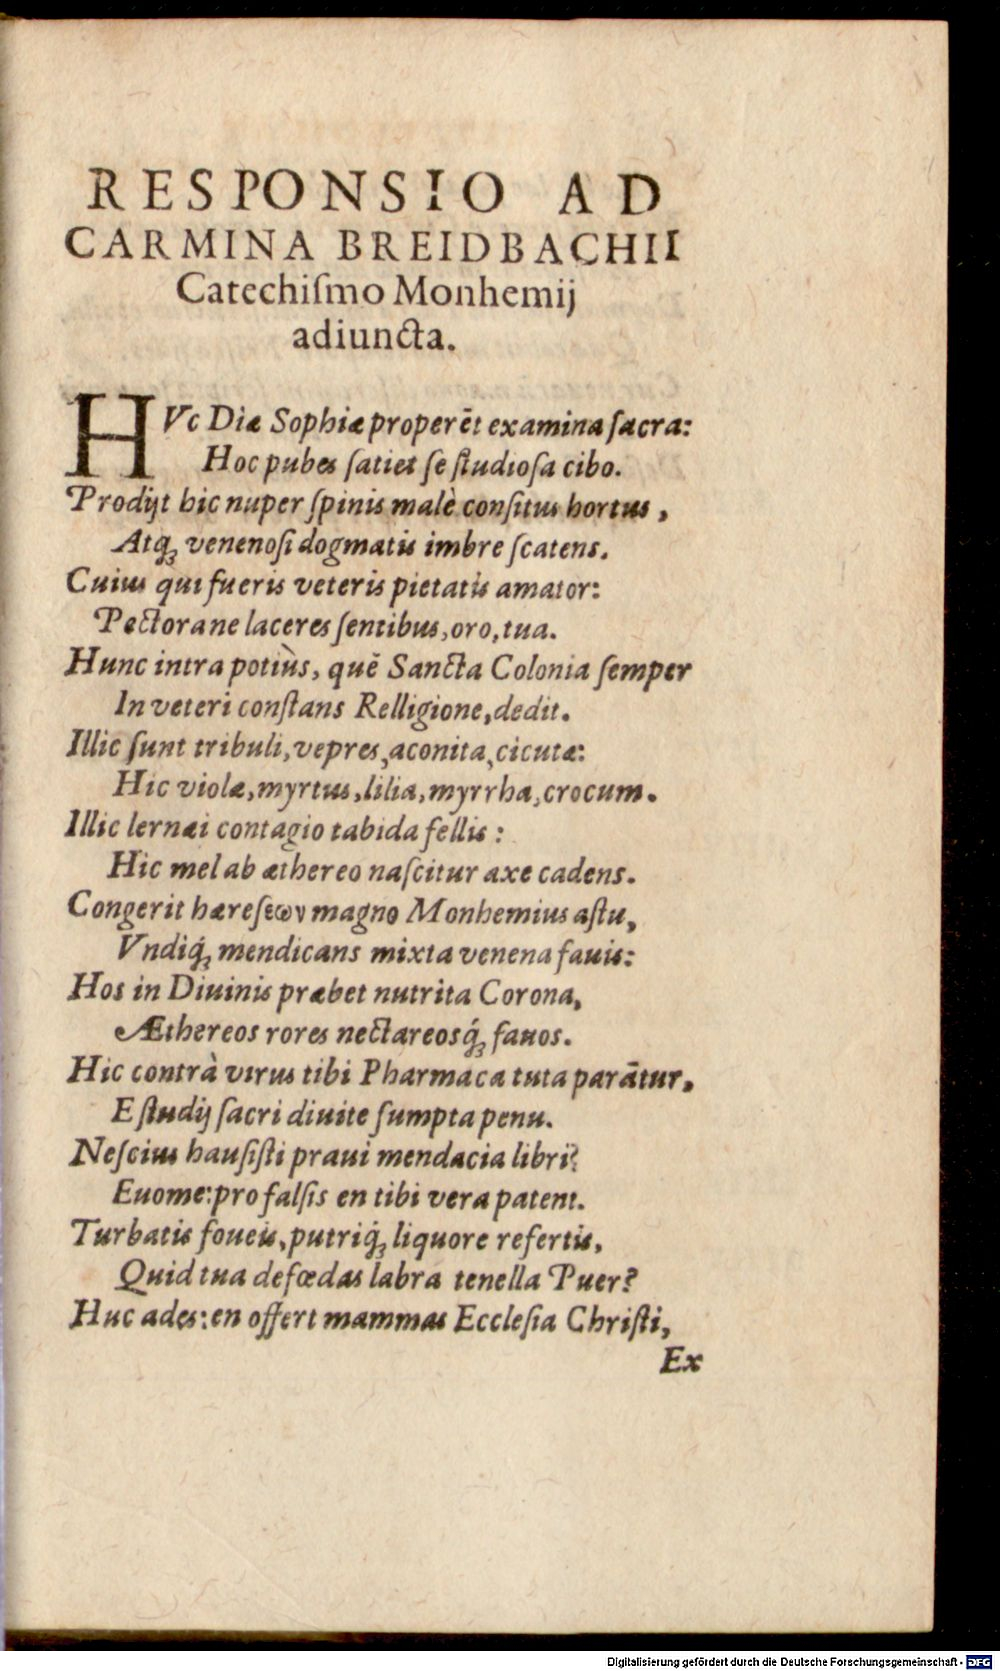 RESPONSIO AD
CARMINA BREIDBACHII
Catechiſmo Monhemij
adiuncta.
HVc Diæ Sophiæ properēt examina ſacra:
Hoc pubes ſatiet ſe ſtudioſa cibo.
Prodijt hic nuper ſpinis malè conſitus hortus,
Atq́ꝫ venenoſi dogmatis imbre ſcatens.
Cuius qui fueris veteris pietatis amator:
Pectorane laceres ſentibus, oro, tua.
Hunc intra potiùs, quē Sancta Colonia ſemper
In veteri conſtans Relligione, dedit.
Illic ſunt tribuli, vepres, aconita, cicutæ:
Hic violæ, myrtus, lilia, myrrha, crocum.
Illic lernæi contagio tabida fellis:
Hic mel ab æthereo naſcitur axe cadens.
Congerit hæreſεων magno Monhemius aſtu,
Vndiq́ꝫ mendicans mixta venena fauis:
Hos in Diuinis præbet nutrita Corona,
Æthereos rores nectareosq́ꝫ fauos.
Hic contrà virus tibi Pharmaca tuta parātur,
E ſtudij ſacri diuite ſumpta penu.
Neſcius hauſiſti praui mendacia libri?
Euome: pro falſis en tibi vera patent.
Turbatis foueis, putriq́ꝫ liquore refertis,
Quid tua defœdas labra tenella Puer?
Huc ades: en offert mammas Eccleſia Chriſti,
Ex
Digitalisierung gefördert durch die Deutsche Forschungsgemeinschaft - DFG